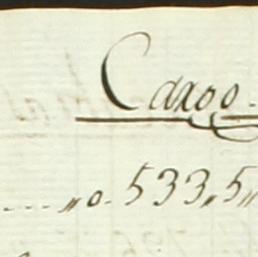 Cargo.
....,,o. 533,,5,,